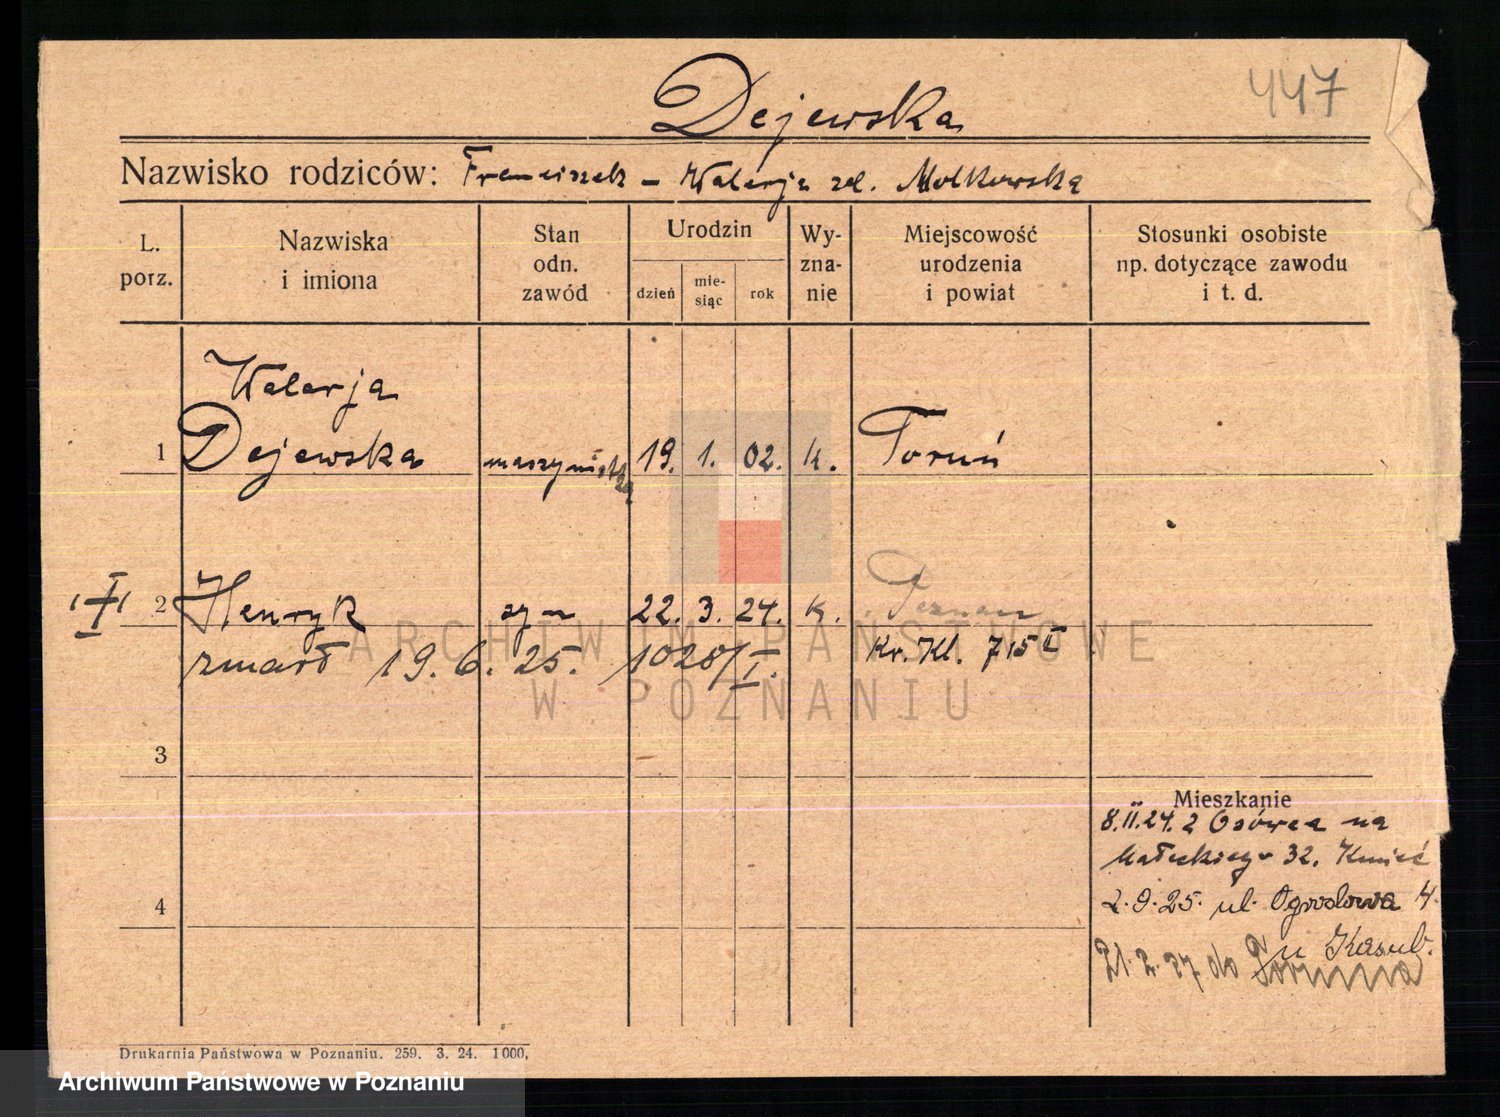 447
Dejewska
Nazwisko rodziców: Franciszek – Walerja zd. Molkowska
L. porz.
Nazwiska i imiona
Stan odn. zawód
Urodzin
dzień
mie-
siąc
rok
Wy-
zna-
nie
Miejscowość urodzenia i powiat
Stosunki osobiste np. dotyczące zawodu i t. d.
Walerja
1 Dejewska maszynistka 19. 1. 02. k. Toruń
2 Henryk syn 22. 3. 24. k. Poznań
zmarł 19. 6. 25. 1028/I. Kr. Kl. 715 II
3
Mieszkanie
8.II.24. z Osówca na
Małeckiego 32.
4
2.9.25. ul. Ogrodowa 4.
u Kasub.
21.2.27 do Torunia
Drukarnia Państwowa w Poznaniu. 259. 3. 24. 1000.
ARCHIWUM PAŃSTWOWE
W POZNANIU
Archiwum Państwowe w Poznaniu